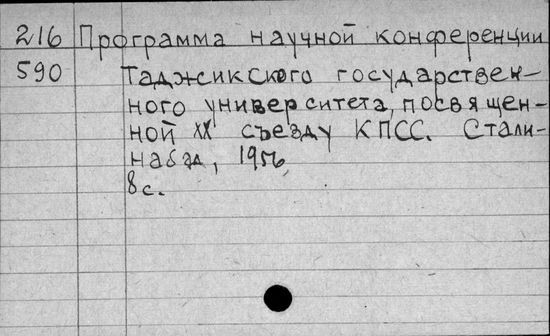 216 Программа научной конференции
590 Таджикского государствен-
ного университета, посвящен-
ной XX съезду КПСС. Стали-
набад, 1956.
8 с.